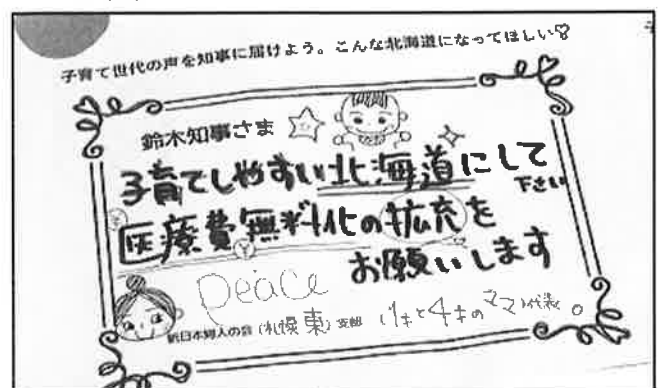 子育て世代の声を知事に届けよう。こんな北海道になってほしい♡
鈴木知事さま
子育てしやすい北海道にして
下さい
医療費無料化の拡充を
お願いします
Peace
新日本婦人の会(札幌東)支部 (1才と4才のママ)代表。